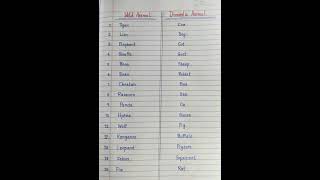 Wild Animal Domestic Animal
1. Tiger Cow
2. Lion Dog
3. Elephant Cat
4. Giraffe Goat
5. Rhino Sheep
6. Bear Rabbit
7. Cheetah
8. Racoon Hen
9. Panda Ox
10. Hyena Horse
11. Wolf Pig
12. Kangaroo Buffalo
13. Leopard Pigeon
14. Zebra Squirrel
15. Fox Rat